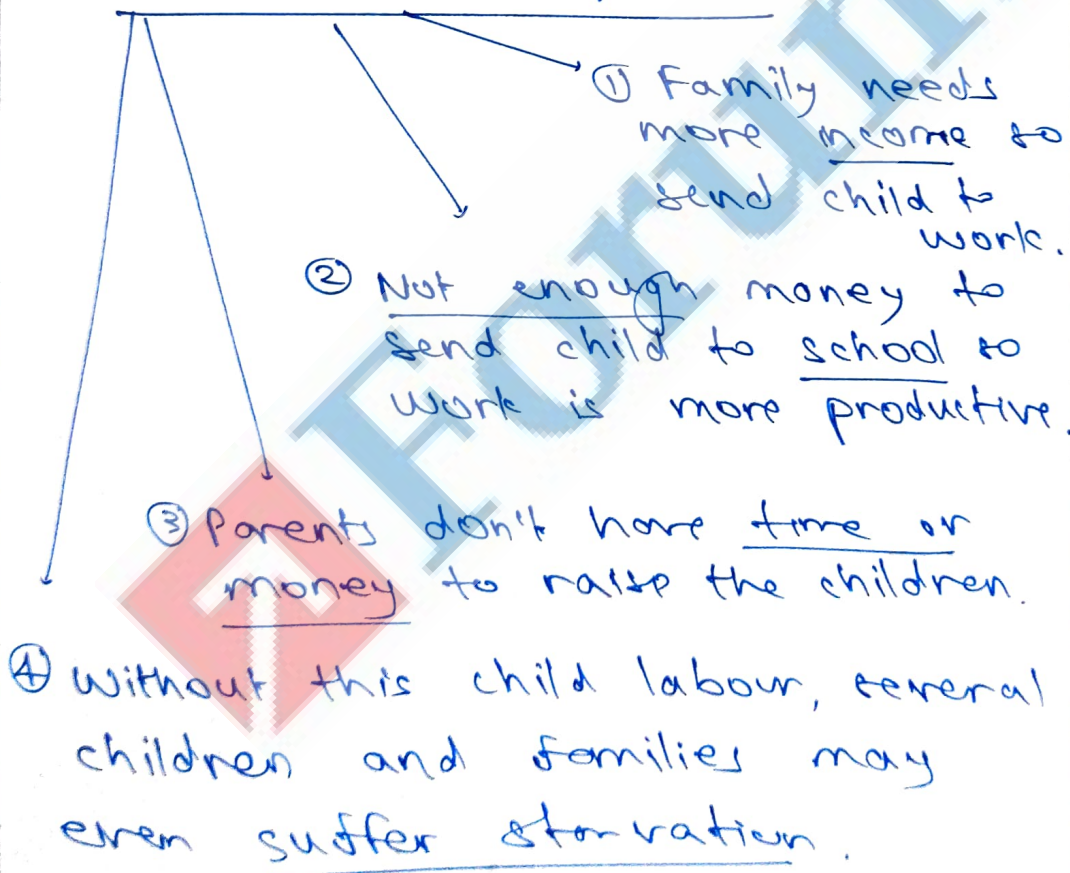 ① Family needs
more income so
send child to
work.
② Not enough money to
send child to school so
work is more productive.
③ Parents don't have time or
money to raise the children.
④ Without this child labour, several
children and families may
even suffer starvation.
Forum